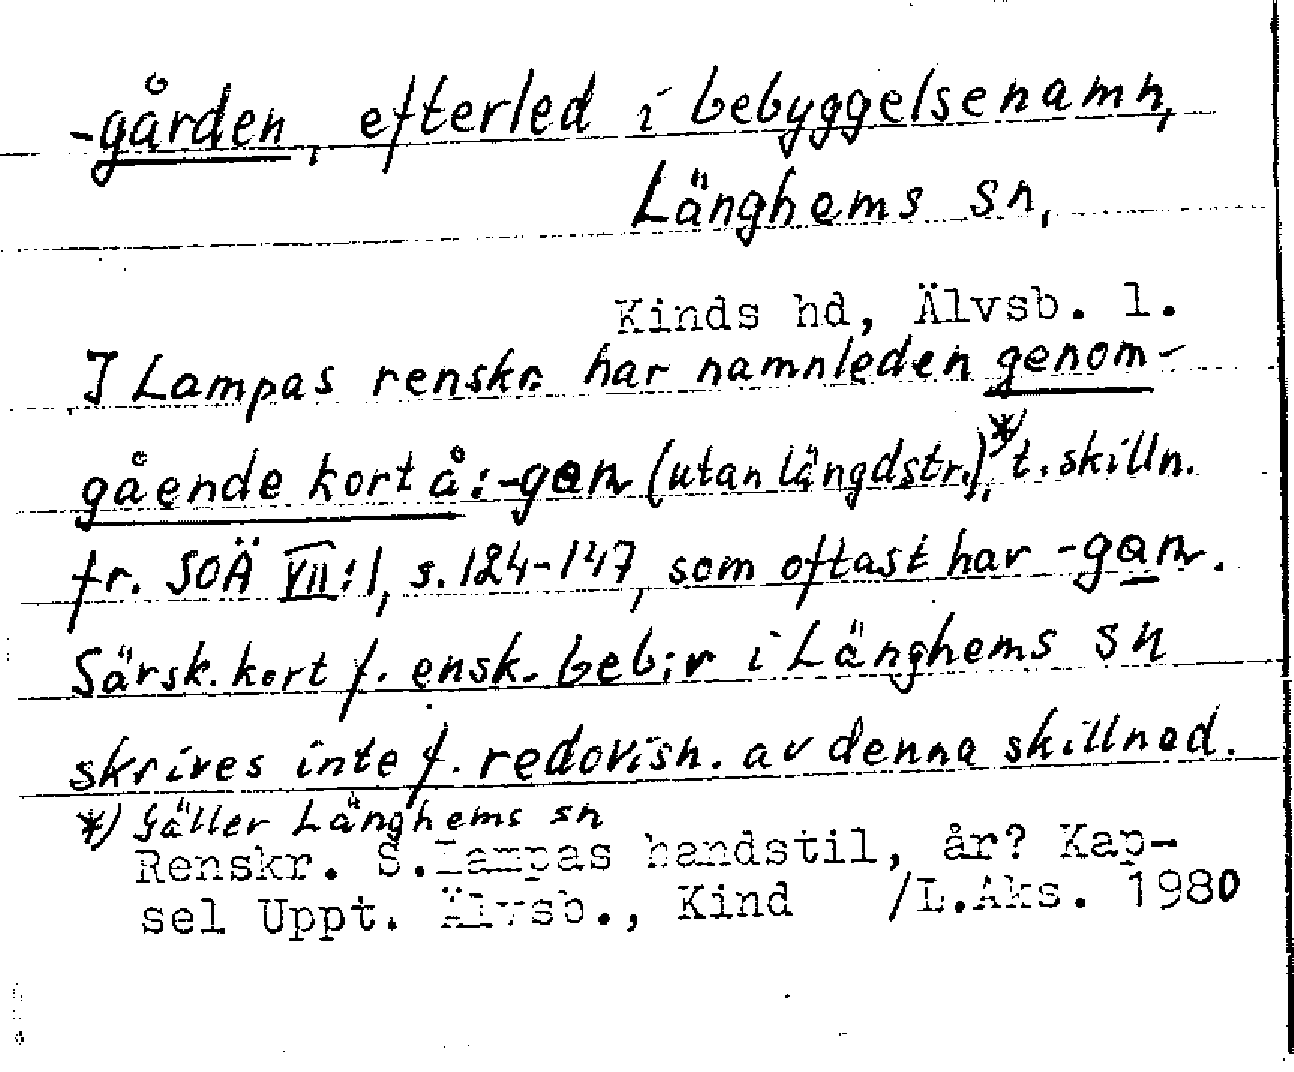 -gården, efterled i bebyggelsenamn,
Länghems sn,
Kinds hd, Älvsb. l.
I Lampas renskr. har namnleden genom-
gående kort å: -gɑn (utan längdstr.),*) t. skilln.
fr. SOÄ VII:1, s. 124-147, som oftast har -gɑ̱n.
Särsk. kort f. ensk. beb:r i Länghems sn
skrives inte f. redovisn. av denna skillnad.
*) Gäller Länghems sn
Renskr. S. Lampas handstil, år? Kap-
sel Uppt. Älvsb., Kind /L.Aks. 1980